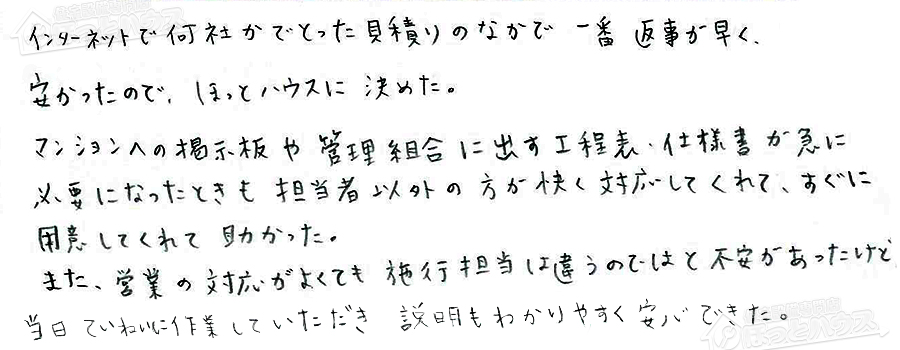 インターネットで何社かでとった見積りのなかで 一番 返事が早く、
安かったので、ほっとハウスに 決めた。
マンションへの掲示板や管理組合に出す工程表・仕様書が急に
必要になったときも 担当者以外の方が快く対応してくれて、すぐに
用意してくれて 助かった。
また、営業の対応がよくても 施行担当は違うのではと不安があったけど
当日ていねいに作業していただき 説明もわかりやすく安心できた。
ほっとハウス